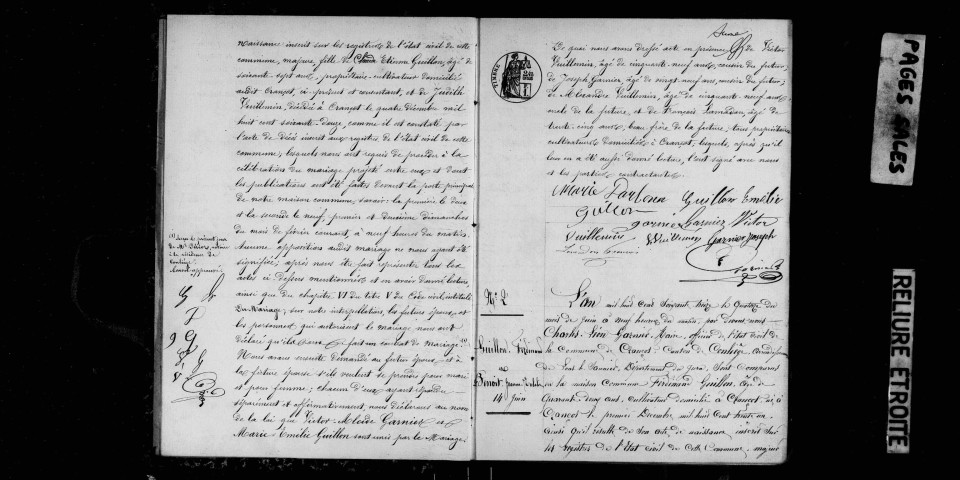 naissance inscrit sur les registres de l'état civil de cette
commune, majeure, fille de Claude Etienne Guillon, âgé de
soixante sept ans, propriétaire-cultivateur domicilié
audit Crançot, ci-présent et consentant, et de Judith
Vuillemin, décédée à Crançot le quatre Décembre mil
huit cent soixante-douze, comme il est constaté par
l'acte de décès inscrit aux registres de l'état civil de cette
commune, lesquels nous ont requis de procéder à la
célébration du mariage projeté entre eux et dont
les publications ont été faites devant la porte principale
de notre maison commune, savoir: la première le deux
et la seconde le neuf, premier et deuxième dimanches
du mois de février courant, à neuf heures du matin.
Aucune opposition audit mariage ne nous ayant été
signifiée; après nous être fait représenter tous les
actes ci-dessus mentionnés et en avoir donné lecture,
ainsi que du chapitre VI du titre V du Code civil intitulé
Du Mariage, sur notre interpellation, les futurs époux et
les personnes qui autorisent le mariage nous ont
déclaré qu'il a été fait un contrat de mariage.
Nous avons ensuite demandé au futur époux et à
la future épouse s'ils veulent se prendre pour mari
et pour femme; chacun d'eux ayant répondu
séparément et affirmativement, nous déclarons au nom
de la loi que Victor Alcide Garnier et
Marie Emélie Guillon sont unis par le Mariage.
De quoi nous avons dressé acte en présence de Victor
Vuillemin, âgé de cinquante-neuf ans, cousin du futur;
de Joseph Garnier, âgé de vingt-neuf ans, cousin du futur;
de Alexandre Vuillemin, âgé de cinquante-neuf ans,
oncle de la future, et de François âgé de
trente cinq ans, beau frère de la future, tous propriétaires
cultivateurs domiciliés à Crançot, lesquels, après qu'il
leur en a été aussi donné lecture, l'ont signé avec nous
et les parties contractantes.
Guillon Emélie
Garnier Victor
Vuillemin Garnier Joseph
TIMBRE
N° 2
Guillon, Ferdinand
et
Benoit
14 Juin
L'an mil huit cent soixante treize le quatorze du
mois de juin à neuf heures du matin, par devant nous
Charles Léon Garnier, Maire, officier de l'état Civil de
la Commune de Crançot, Canton de Conliège, arrondissement
de Lons le Saunier, Département du Jura, sont comparus
en la maison Commune Ferdinand Guillon, âgé de
quarante deux ans, cultivateur domicilié à Crançot, né à
Crançot le premier Décembre mil huit cent trente un
ainsi qu'il résulte de son acte de naissance inscrit sur
les registres de l'Etat civil de cette Commune, majeur
PAGES SALES
RELIURE ETROITE